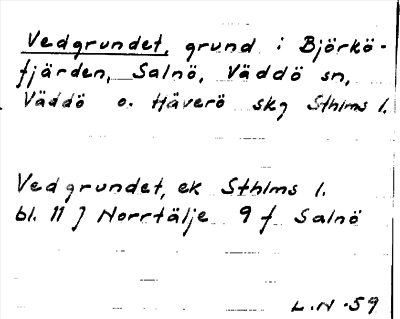 Vedgrundet, grund i Björkö-
fjärden, Salnö, Väddö sn,
Väddö o. Häverö skg Sthlms l.
Vedgrundet, ek Sthlms l.
bl. 11 J Norrtälje 9 f Salnö
L.N -59